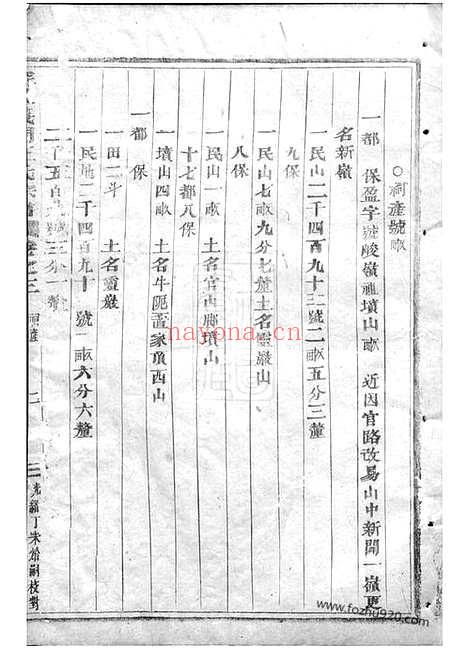 ○祠產號畝
一都 保盈字號峻嶺 墳山畝 近因官路改易山中新開一嶺更
名新嶺
一民山二千四百九十三號二畝五分三釐
九保
一民山七畝九分七釐土名靈巖山
八保
一民山一畝 土名官山廊墳山
十七都八保
一墳山四畝 土名牛 家頂西山
一都 保
一田二斗 土名靈巖
一民 二千四百九十 號一畝六分六釐
二千五百 號三分一釐
祠產
二 三
光緒丁未 嗣校對
mayona.cn
www.fozhu920.com